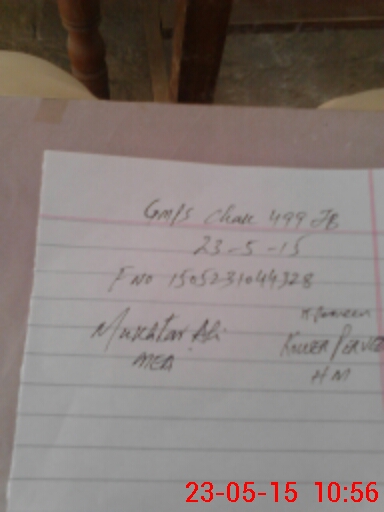 GMPS Chak 499 JB
23-5-15
F NO 1505231044328
Mukhtar Ali
MEA
K. Parveen
HM
23-05-15 10:56